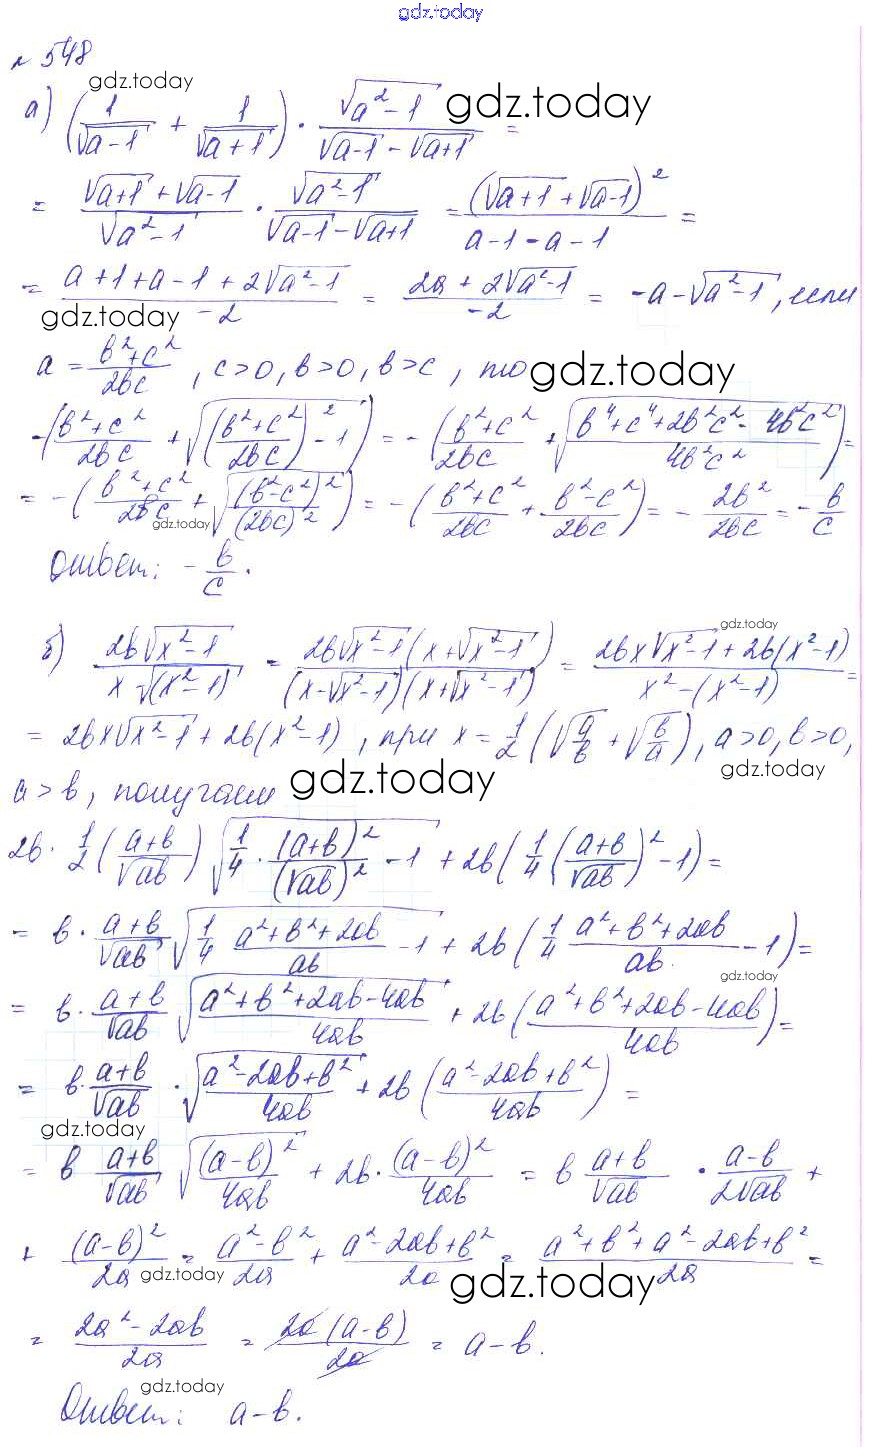 gdz.today
№ 548
gdz.today
а) (1/√(a-1) + 1/√(a+1)) · √(a²-1)/(√(a-1) - √(a+1)) = gdz.today
= (√(a+1) + √(a-1))/√(a²-1) · √(a²-1)/(√(a-1) - √(a+1)) = (√(a+1) + √(a-1))²/(a-1-a-1) =
= (a+1+a-1+2√(a²-1))/-2 = (2a+2√(a²-1))/-2 = -a-√(a²-1), если
gdz.today
a = (b²+c²)/2bc, c>0, b>0, b>c, то gdz.today
-((b²+c²)/2bc + √(((b²+c²)/2bc)²-1)) = -((b²+c²)/2bc + √((b⁴+c⁴+2b²c²-4b²c²)/4b²c²)) =
= -((b²+c²)/2bc + √((b²-c²)²/(2bc)²)) = -((b²+c²)/2bc + (b²-c²)/2bc) = -2b²/2bc = -b/c
gdz.today
Ответ: -b/c.
gdz.today
б) 2b√(x²-1)/(x√(x²-1)) = 2b√(x²-1)(x+√(x²-1))/((x-√(x²-1))(x+√(x²-1))) = (2bx√(x²-1)+2b(x²-1))/(x²-(x²-1)) =
= 2bx√(x²-1)+2b(x²-1), при x = 1/2(√(a/b)+√(b/a)), a>0, b>0,
gdz.today
a>b, получаем gdz.today
2b · 1/2((a+b)/√ab)√(1/4 · (a+b)²/(√ab)² -1) + 2b(1/4((a+b)/√ab)²-1) =
= b · (a+b)/√ab √(1/4 (a²+b²+2ab)/ab -1) + 2b(1/4 (a²+b²+2ab)/ab -1) =
gdz.today
= b · (a+b)/√ab √((a²+b²+2ab-4ab)/4ab) + 2b((a²+b²+2ab-4ab)/4ab) =
= b · (a+b)/√ab · √((a²-2ab+b²)/4ab) + 2b((a²-2ab+b²)/4ab) =
gdz.today
= b (a+b)/√ab √((a-b)²/4ab) + 2b · (a-b)²/4ab = b (a+b)/√ab · (a-b)/2√ab +
+ (a-b)²/2a = (a²-b²)/2a + (a²-2ab+b²)/2a = (a²+b²+a²-2ab+b²)/2a =
gdz.today gdz.today
= (2a²-2ab)/2a = 2a(a-b)/2a = a-b.
gdz.today
Ответ: a-b.